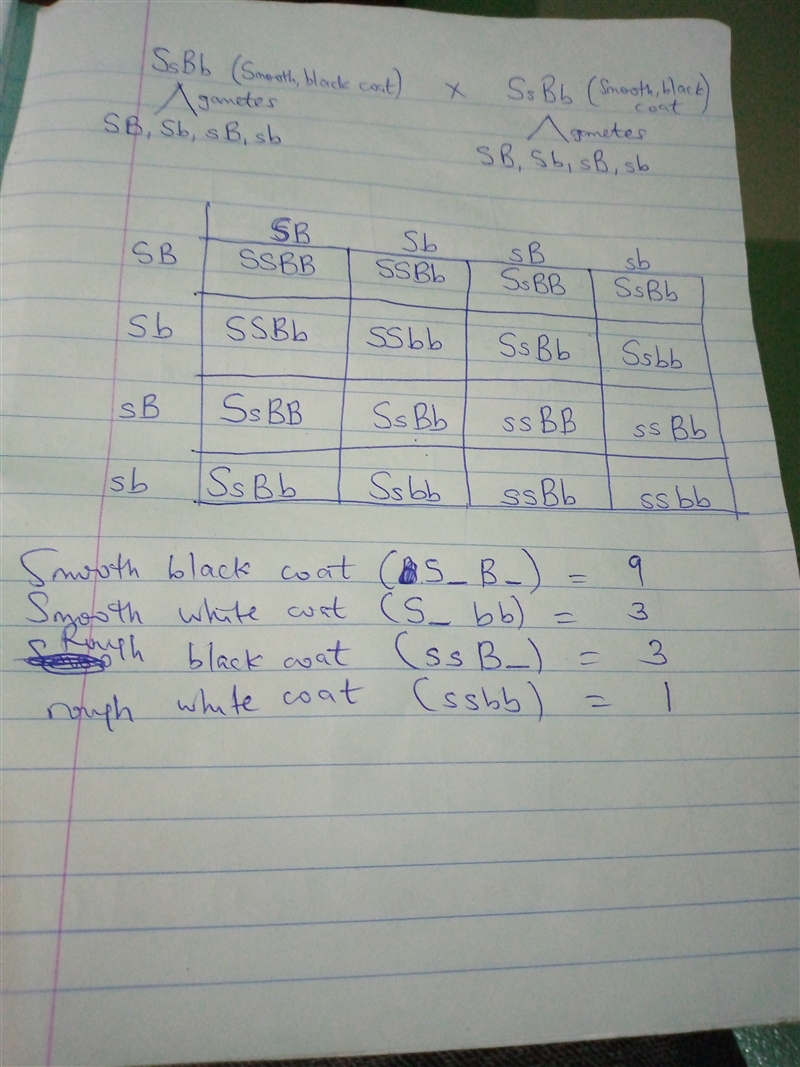 SsBb (Smooth, black coat) x SsBb (Smooth, black coat)
gametes gametes
SB, Sb, sB, sb SB, Sb, sB, sb
SB Sb sB sb
SB SSBB SSBb SsBB SsBb
Sb SSBb SSbb SsBb Ssbb
sB SsBB SsBb ssBB ssBb
sb SsBb Ssbb ssBb ssbb
Smooth black coat (S_ B_) = 9
Smooth white coat (S_ bb) = 3
Rough black coat (ssB_) = 3
rough white coat (ssbb) = 1